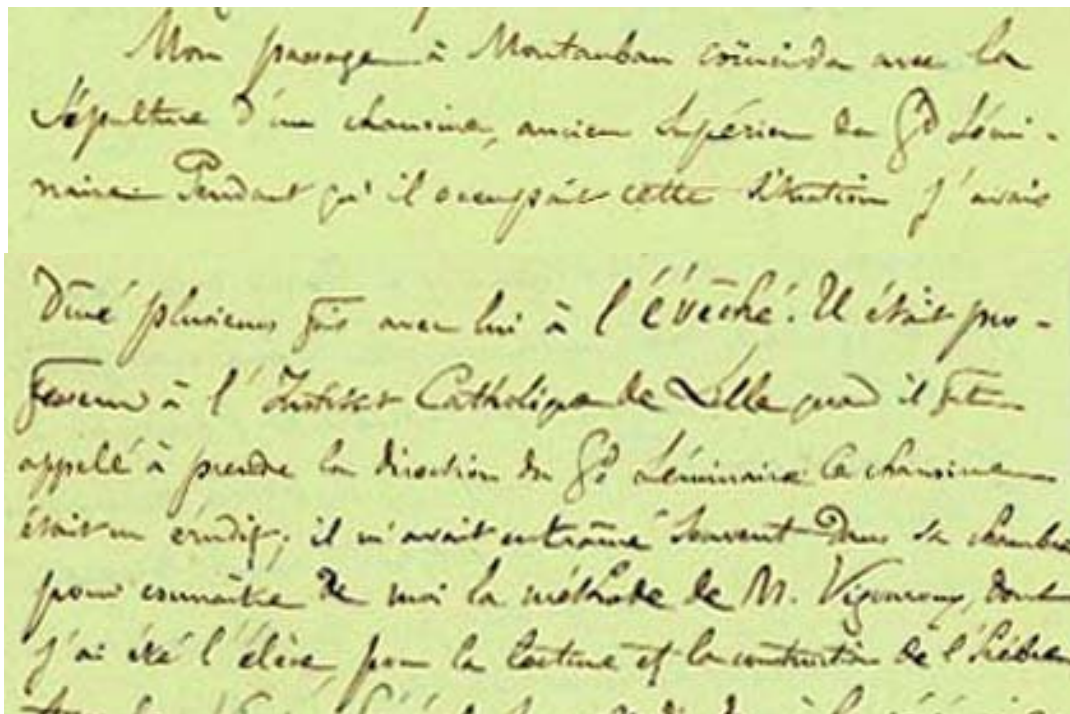 Mon passage à Montauban coïncida avec la
sépulture d'un chanoine, ancien supérieur du Gd Sémi-
naire. Pendant qu'il occupait cette situation j'avais
dîné plusieurs fois avec lui à l'évêché. Il était pro-
fesseur à l'Institut Catholique de Lille quand il fut
appelé à prendre la direction du Gd Séminaire. Ce chanoine
était un érudit; il m'avait entraîné souvent dans sa chambre
pour connaître de moi la méthode de M. Vigouroux, dont
j'ai été l'élève, pour la lecture et la construction de l'hébreu